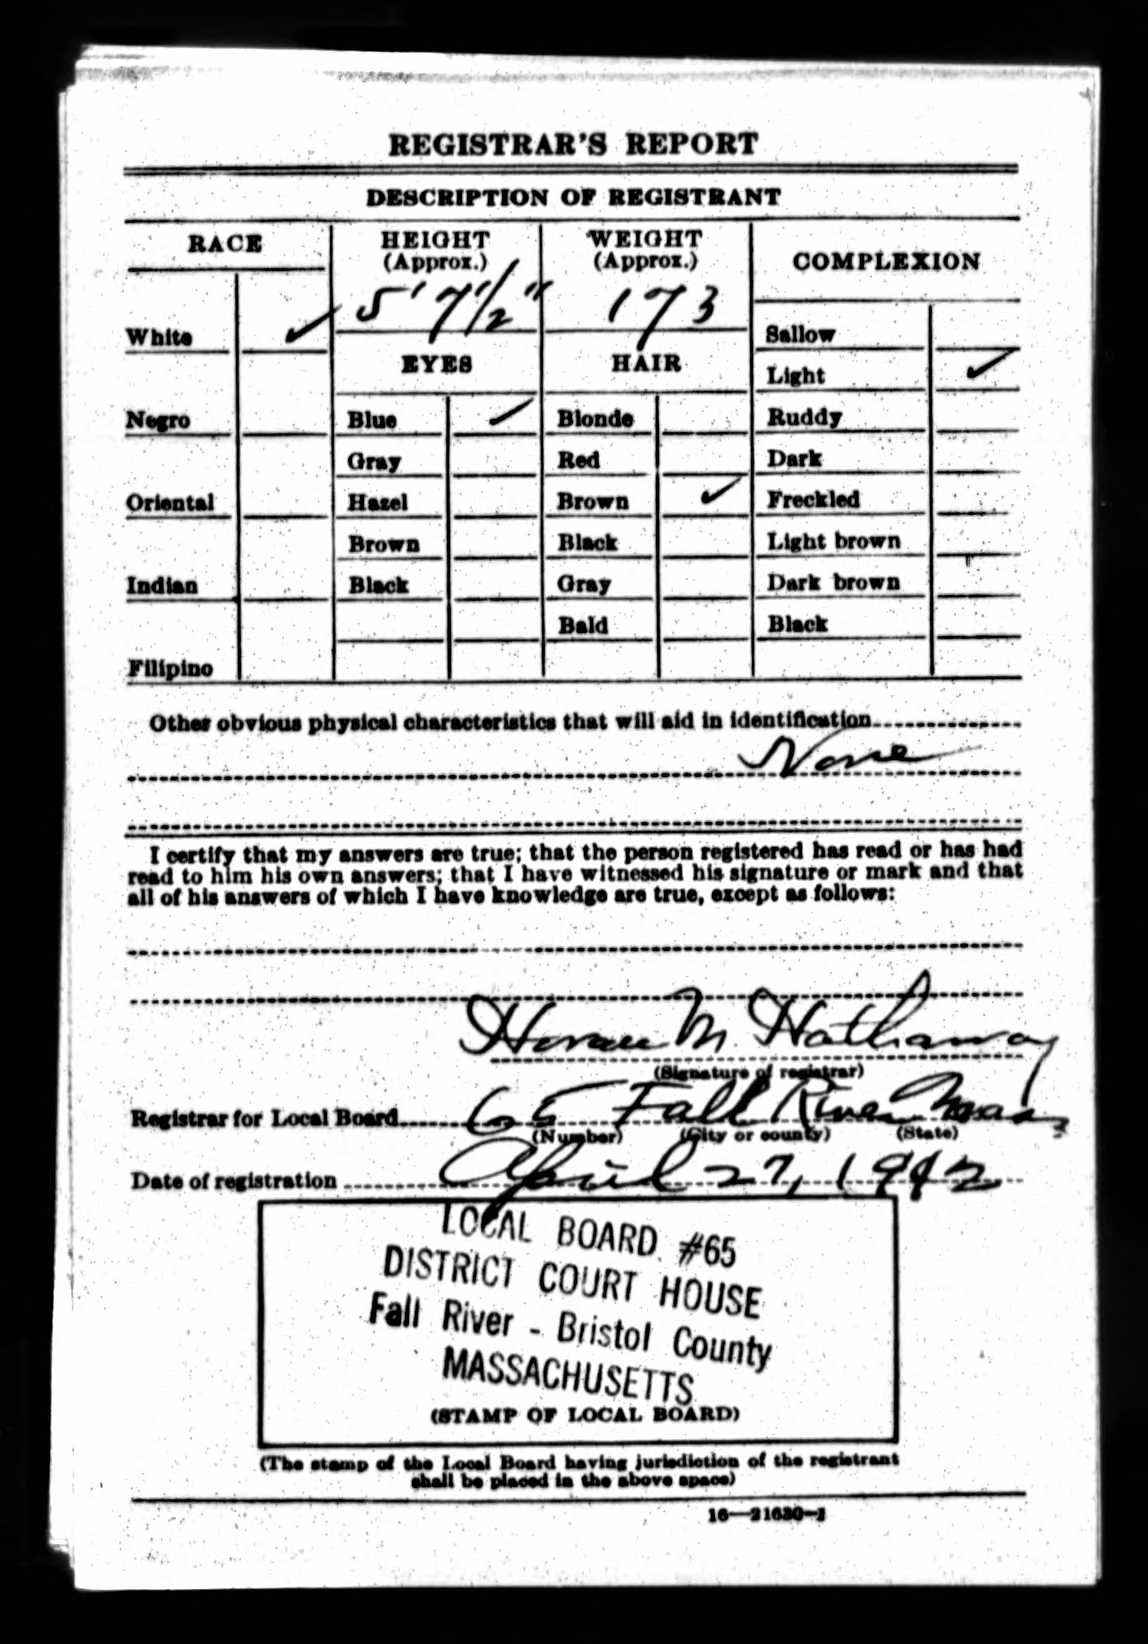 REGISTRAR'S REPORT
DESCRIPTION OF REGISTRANT
RACE
HEIGHT
(Approx.)
WEIGHT
(Approx.)
COMPLEXION
5' 7 1/2"
173
White ✓
Sallow
EYES
HAIR
Light ✓
Negro
Blue ✓
Blonde
Ruddy
Gray
Red
Dark
Oriental
Hazel
Brown ✓
Freckled
Brown
Black
Light brown
Indian
Black
Gray
Dark brown
Bald
Black
Filipino
Other obvious physical characteristics that will aid in identification
None
I certify that my answers are true; that the person registered has read or has had
read to him his own answers; that I have witnessed his signature or mark and that
all of his answers of which I have knowledge are true, except as follows:
M. Hathaway
(Signature of registrar)
Registrar for Local Board 65 Fall River Mass
(Number) (City or county) (State)
Date of registration April 27, 1942
LOCAL BOARD #65
DISTRICT COURT HOUSE
Fall River - Bristol County
MASSACHUSETTS
(STAMP OF LOCAL BOARD)
(The stamp of the Local Board having jurisdiction of the registrant
shall be placed in the above space)
16—21630-1